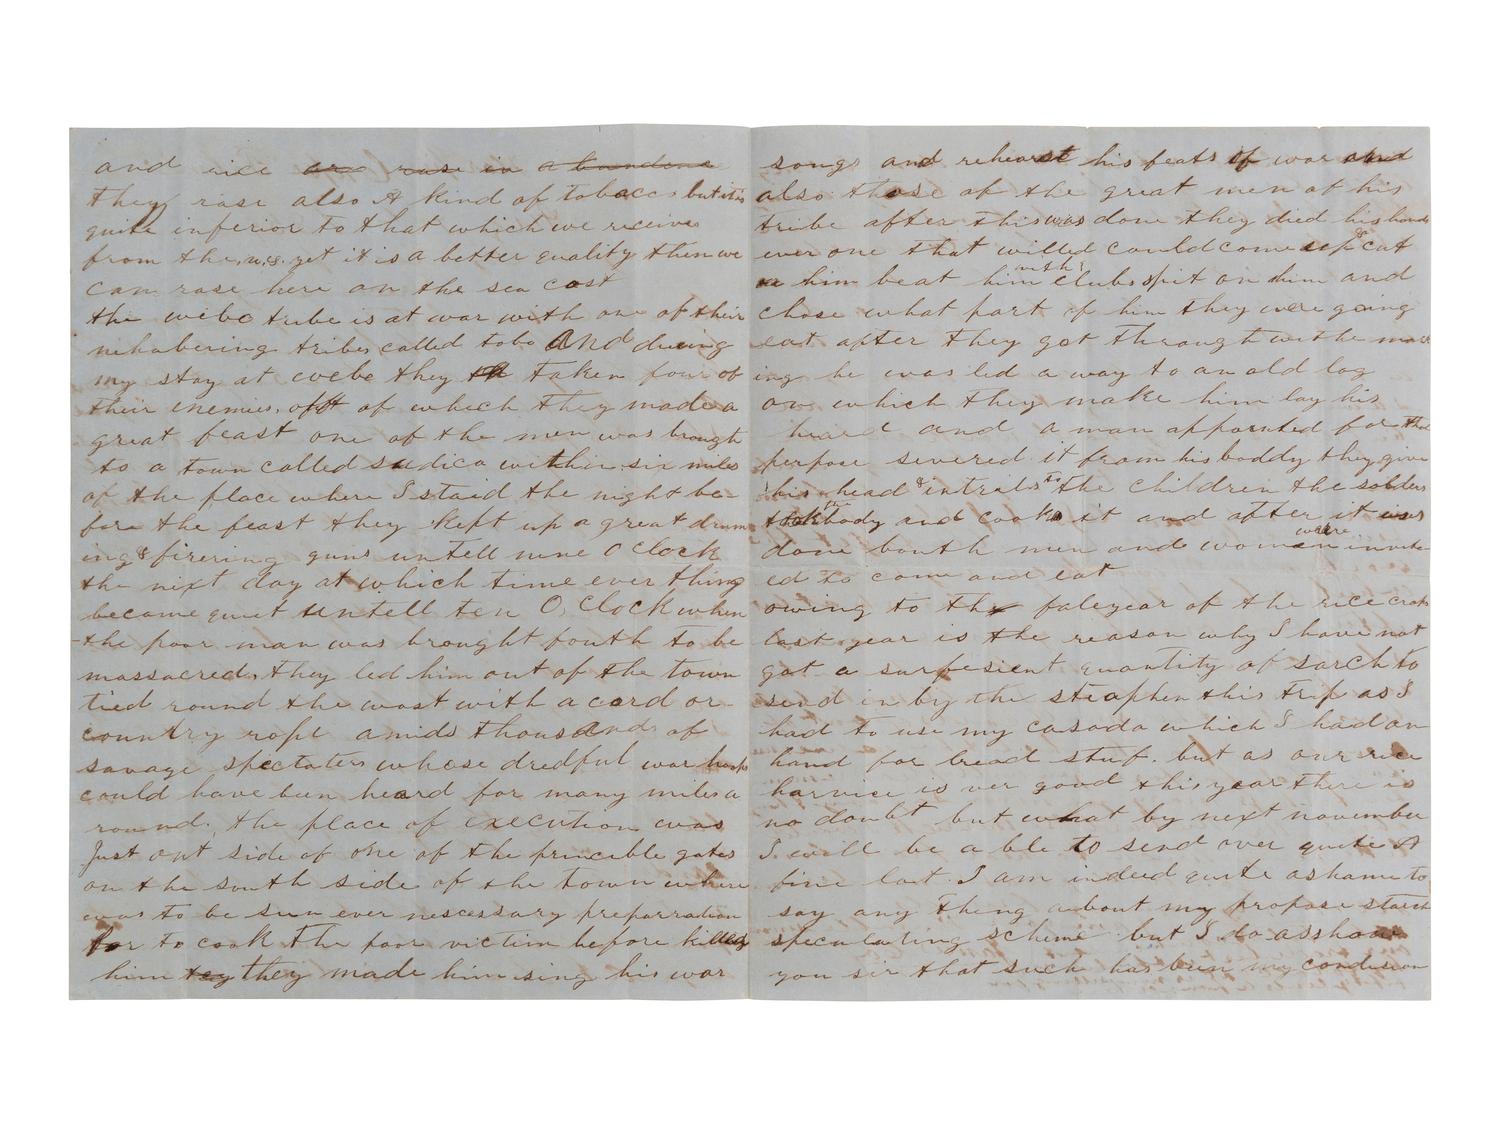 and rice are rase in abundans
they rase also A kind of tobacco but it is
quite inferior to that which we receive
from the u.s. yet it is a better quality then we
can rase here on the sea cost
the webo tribe is at war with one of their
nehabering tribes called tobo And during
my stay at webo they taken four of
their enemies, off of which they made a
great feast one of the men was brough
to a town called sudica within six miles
of the place where I staid the night be-
fore the feast they kept up a great drum
ing & firering guns untell nine O clock
the nixt day at which time ever thing
became quiet untell ten O, clock when
the poor man was brought fouth to be
massacred, they led him out of the town
tied round the wast with a cord or
country rope amids thousands of
savage spectaters whose dredful war hoops
could have been heard for many miles a
round. the place of execution was
Just out side of one of the princible gates
on the south side of the town where
was to be seen ever nescessary preparration
for to cook the poor victim before killed
him they they made him sing his war
songs and rehearst his feats of war and
also those of the great men of his
tribe after this was done they died his hands
ever one that willed could come up & cut
him beat him with clubs spit on him and
chose what part of him they were going
eat after they got through withe mock
ing he was led a way to an old log
on which they make him lay his
heard and a man apported for that
perpose severed it from his boddy they give
his head & intrils to the children the solders
took the body and cook it and after it was
done bouth men and women were invite
ed to come and eat
owing to the faleyear of the rice crop
last year is the reason why I have not
got a surfesient quantity of sarch to
send in by the steaphen this trip as I
had to use my casada which I had on
hand for bread stuf. but as our rice
harvice is ver good this year there is
no doubt but what by next november
I will be a ble to send over quite A
fine lot. I am indeed quite ashame to
say any thing about my propose starch
speculating scheme but I do asshore
you sir that such has been my condision